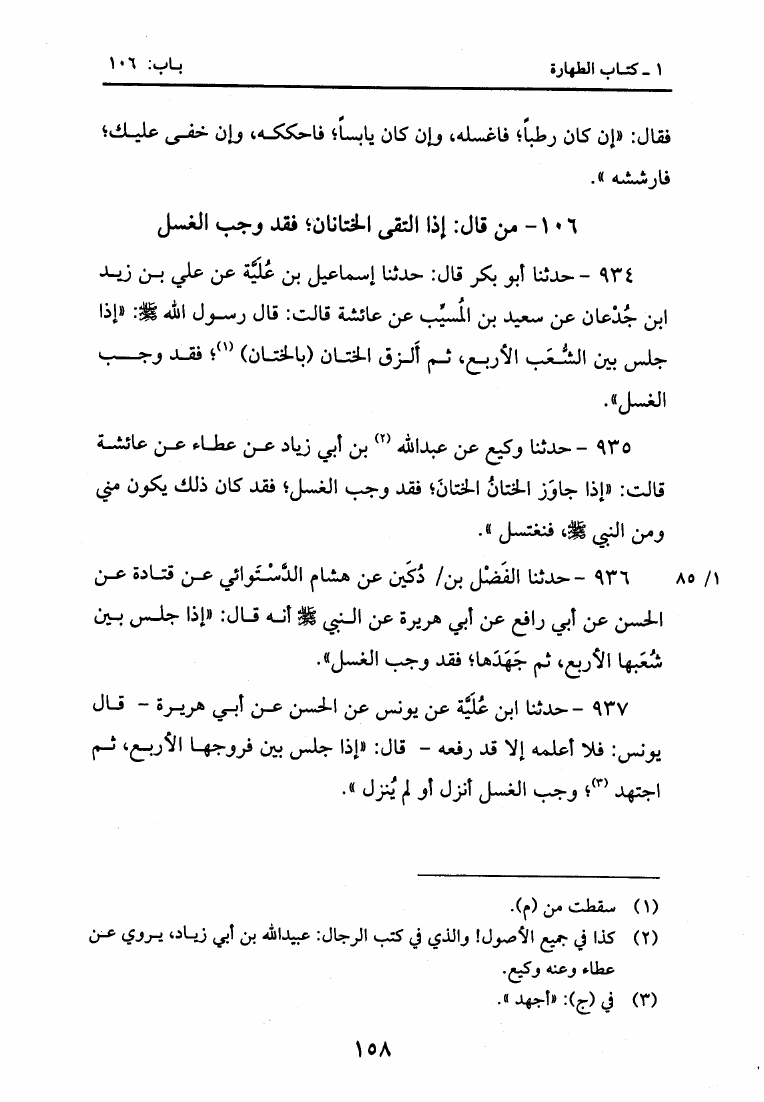 ١ ـ كتاب الطهارة باب: ١٠٦
فقال: «إن كان رطباً؛ فاغسله، وإن كان يابساً؛ فاحككه، وإن خفي عليك؛
فارششه ».
١٠٦- من قال: إذا التقى الختانان؛ فقد وجب الغسل
٩٣٤ - حدثنا أبو بكر قال: حدثنا إسماعيل بن عُليَّة عن علي بن زيد
ابن جُدْعان عن سعيد بن المُسيِّب عن عائشة قالت: قال رسول الله ﷺ: «إذا
جلس بين الشُّعَب الأربع، ثم أَلزق الختان (بالختان) (١)؛ فقد وجب
الغسل».
٩٣٥ - حدثنا وكيع عن عبدالله (٢) بن أبي زياد عن عطاء عن عائشة
قالت: «إذا جاوَز الختانُ الختانَ؛ فقد وجب الغسل؛ فقد كان ذلك يكون مني
ومن النبي ﷺ، فنغتسل ».
٩٣٦ - حدثنا الفَضْل بن/ دُكَين عن هشام الدَّسْتَوائي عن قتادة عن ١/ ٨٥
الحسن عن أبي رافع عن أبي هريرة عن النبي ﷺ أنه قال: «إذا جلس بين
شُعَبها الأربع، ثم جَهَدَها؛ فقد وجب الغسل».
٩٣٧ - حدثنا ابن عُليَّة عن يونس عن الحسن عن أبي هريرة - قال
يونس: فلا أعلمه إلا قد رفعه - قال: «إذا جلس بين فروجها الأربع، ثم
اجتهد (٣)؛ وجب الغسل أنزل أو لم يُنزل ».
(١) سقطت من (م).
(٢) كذا في جميع الأصول! والذي في كتب الرجال: عبيدالله بن أبي زياد، يروي عن
عطاء وعنه وكيع.
(٣) في (ج): «أجهد ».
١٥٨